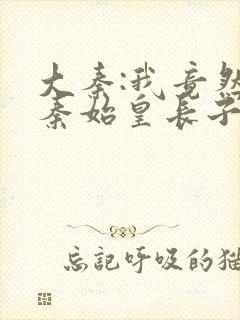 大秦:我竟然
秦始皇长子
忘记呼吸的猫